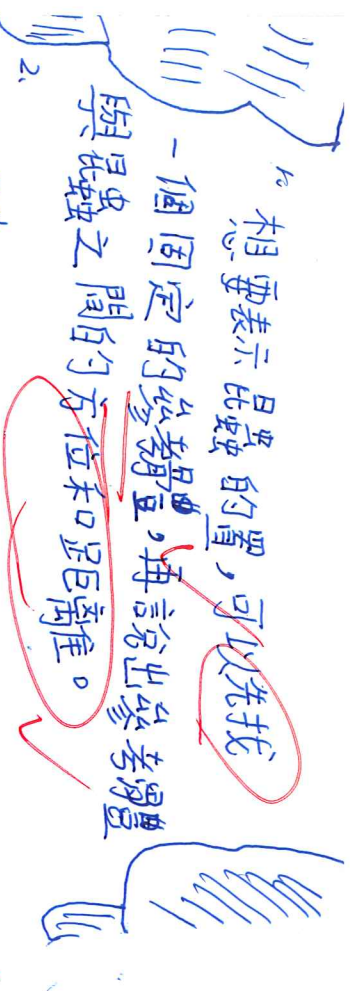 1. 想要表示昆蟲的置,可以先找
一個固定的參考體,再說出參考體
與昆蟲之間的方位和距離。
2.